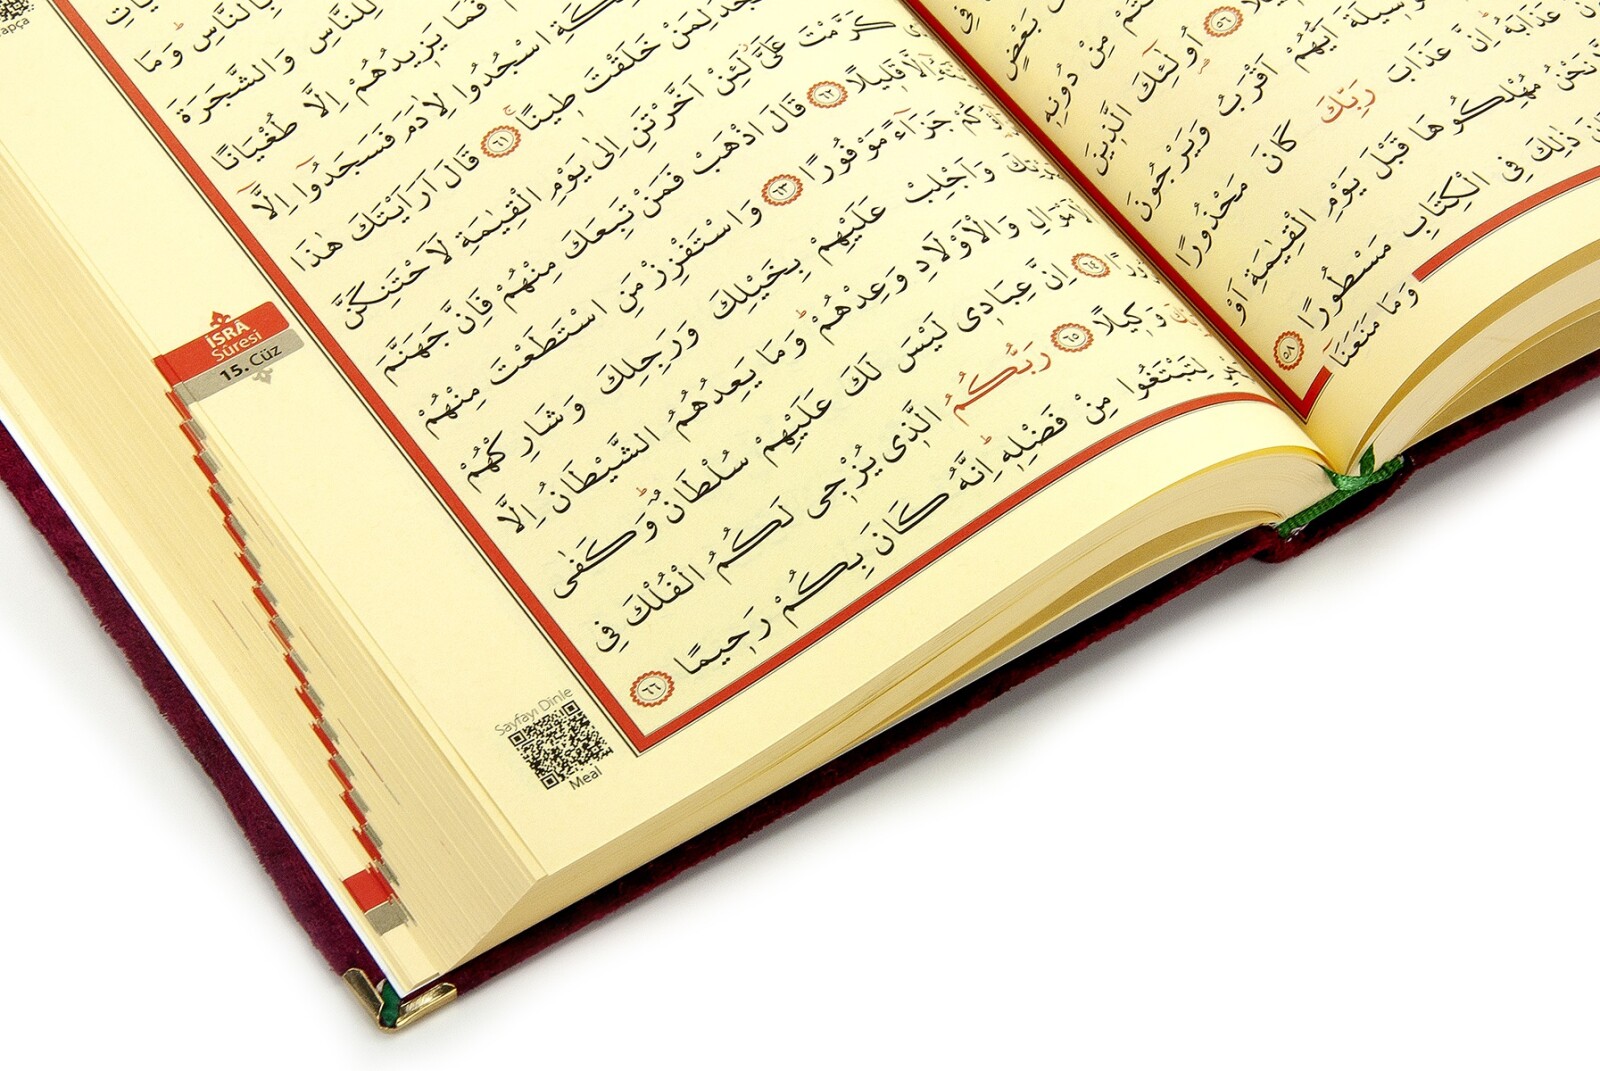 فِى
بَعْضٍ
مِنْ دُونِهِ
٥٦ اُولٰٓئِكَ الَّذِينَ
اَيُّهُمْ اَقْرَبُ وَيَرْجُونَ
عَذَابَهُ اِنَّ عَذَابَ رَبِّكَ كَانَ مَحْذُورًا
نَحْنُ مُهْلِكُوهَا قَبْلَ يَوْمِ الْقِيٰمَةِ اَوْ
ذٰلِكَ فِى الْكِتَابِ مَسْطُورًا ٥٨
وَمَا مَنَعَنَا
بِالنَّاسِ وَمَا
لِلنَّاسِ وَالشَّجَرَةَ
فَمَا يَزِيدُهُمْ اِلَّا طُغْيَانًا
اسْجُدُوا لِاٰدَمَ فَسَجَدُٓوا اِلَّٓا
لِمَنْ خَلَقْتَ طِينًا ٦١ قَالَ اَرَاَيْتَكَ هٰذَا
كَرَّمْتَ عَلَىَّ لَئِنْ اَخَّرْتَنِ اِلٰى يَوْمِ الْقِيٰمَةِ لَاَحْتَنِكَنَّ
اِلَّا قَلِيلًا ٦٢ قَالَ اذْهَبْ فَمَنْ تَبِعَكَ مِنْهُمْ فَاِنَّ جَهَنَّمَ
جَزَٓاءً مَوْفُورًا ٦٣ وَاسْتَفْزِزْ مَنِ اسْتَطَعْتَ مِنْهُمْ
وَاَجْلِبْ عَلَيْهِمْ بِخَيْلِكَ وَرَجِلِكَ وَشَارِكْهُمْ
وَالْاَوْلَادِ وَعِدْهُمْ وَمَا يَعِدُهُمُ الشَّيْطَانُ اِلَّا
٦٤ اِنَّ عِبَادِى لَيْسَ لَكَ عَلَيْهِمْ سُلْطَانٌ وَكَفٰى
وَكِيلًا ٦٥ رَبُّكُمُ الَّذِى يُزْجِى لَكُمُ الْفُلْكَ فِى
لِتَبْتَغُوا مِنْ فَضْلِهِ اِنَّهُ كَانَ بِكُمْ رَحِيمًا ٦٦
İSRA
Sûresi
15. Cüz
Sayfayı Dinle
Meal